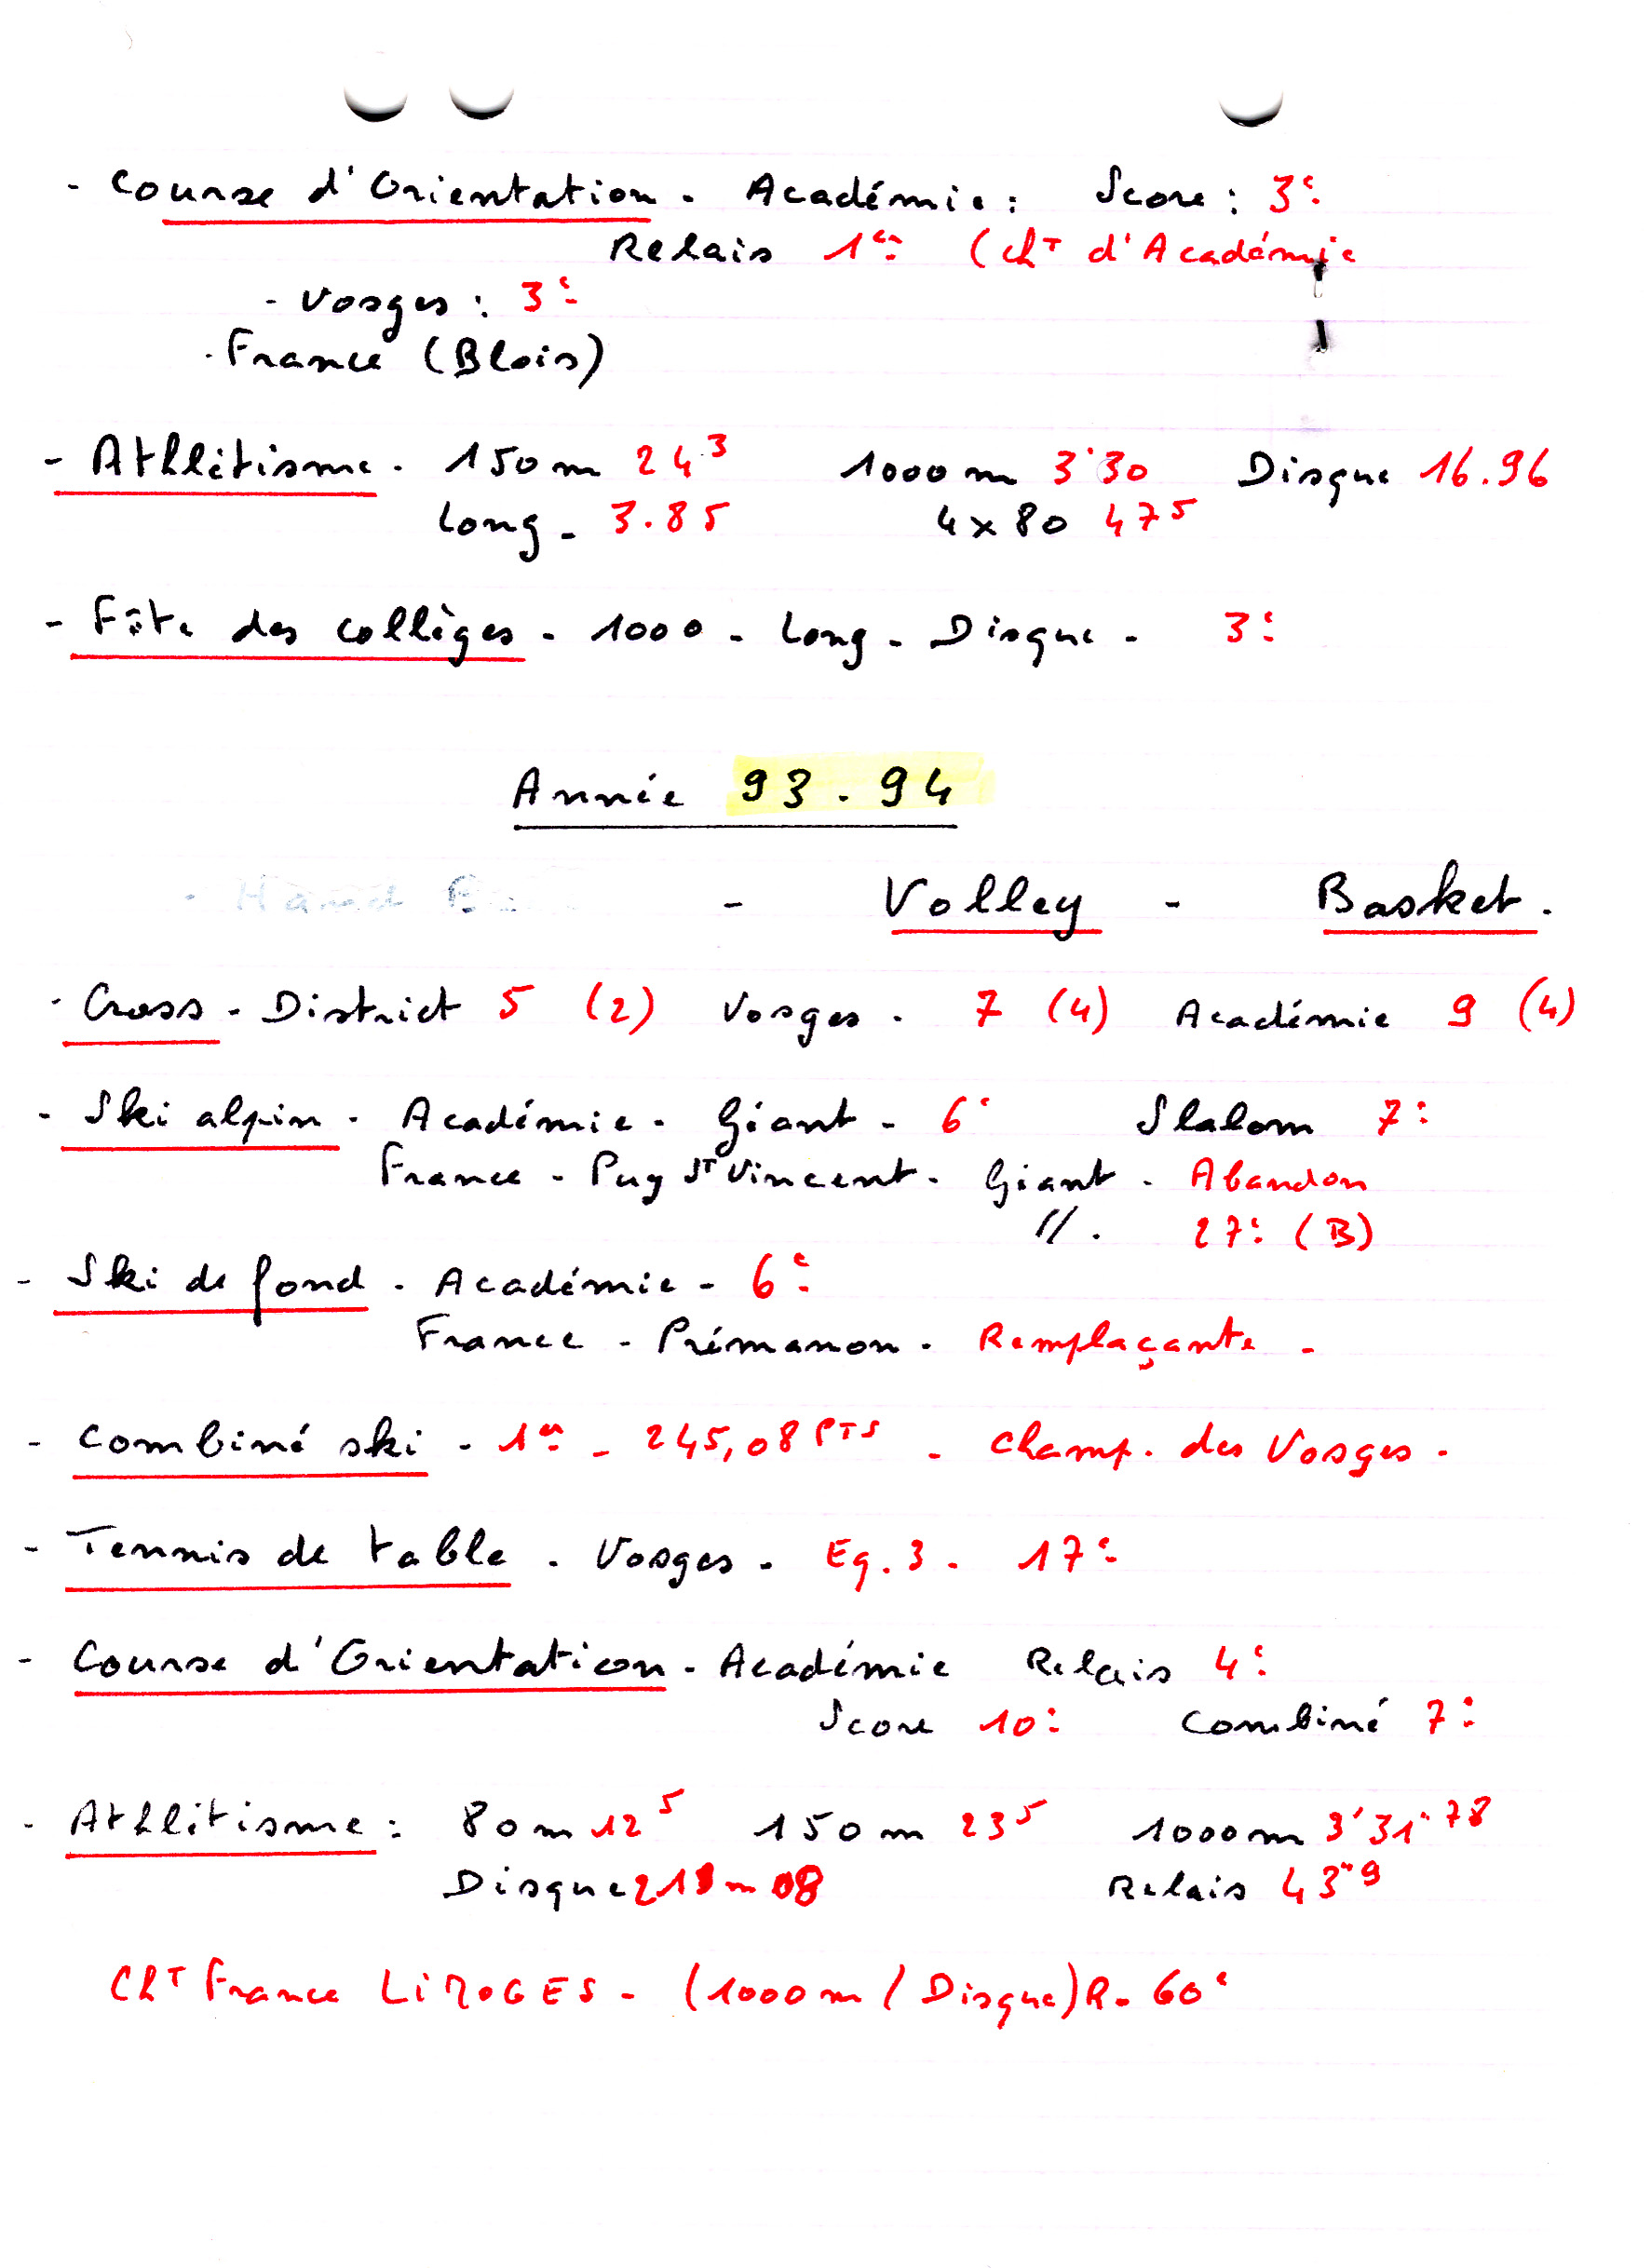 - Course d'Orientation - Académie : Score : 3e
Relais 1er (chT d'Académie
- Vosges : 3e
. France (Blois)
- Athlétisme - 150 m 24.3 1000 m 3'30 Disque 16.96
Long - 3.85 4x80 47 5
- Fête des collèges - 1000 - Long - Disque - 3e
Année 93 - 94
- Hand - Volley - Basket.
- Cross - District 5 (2) Vosges - 7 (4) Académie 9 (4)
- Ski alpin - Académie - Géant - 6e Slalom 7e
France - Puy ST Vincent - Géant - Abandon
// - 27e (B)
- Ski de fond - Académie - 6e
France - Prémanon - Remplaçante -
- Combiné ski - 1er - 245,08 PTS - champ. des Vosges -
- Tennis de table - Vosges - Eq. 3 - 17e
- Course d'Orientation - Académie Relais 4e
Score 10e Combiné 7e
- Athlétisme : 80 m 12 5 150 m 23 5 1000 m 3'31"78
Disque m 08 Relais 43"9
ChT France LIMOGES - (1000 m / Disque) R - 60e